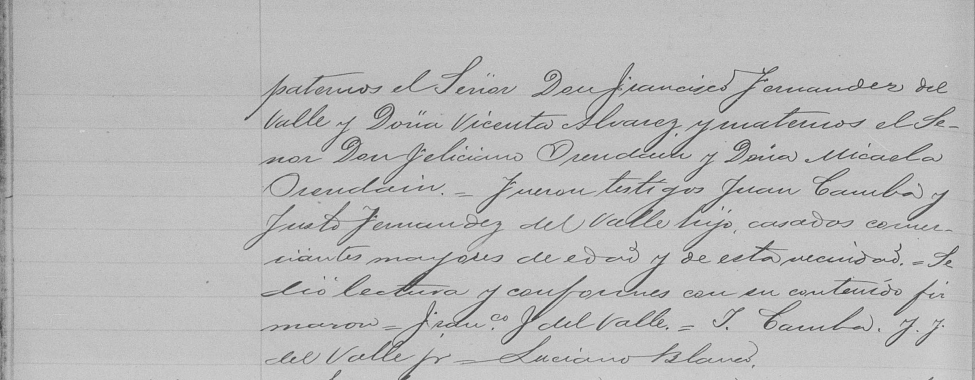 paternos el Señor Don Francisco Fernandez del
Valle y Doña Vicenta Alvarez, y maternos el Se-
ñor Don Feliciano Orendain y Doña Micaela
Orendain. = Fueron testigos Juan Camba y
Justo Fernandez del Valle hijo, casados comer-
ciantes mayores de edad y de esta vecindad. = Se
dió lectura y conformes con su contenido fir
maron = Fran.co F del Valle. = J. Camba. J. F.
del Valle jr = Luciano Blanco.